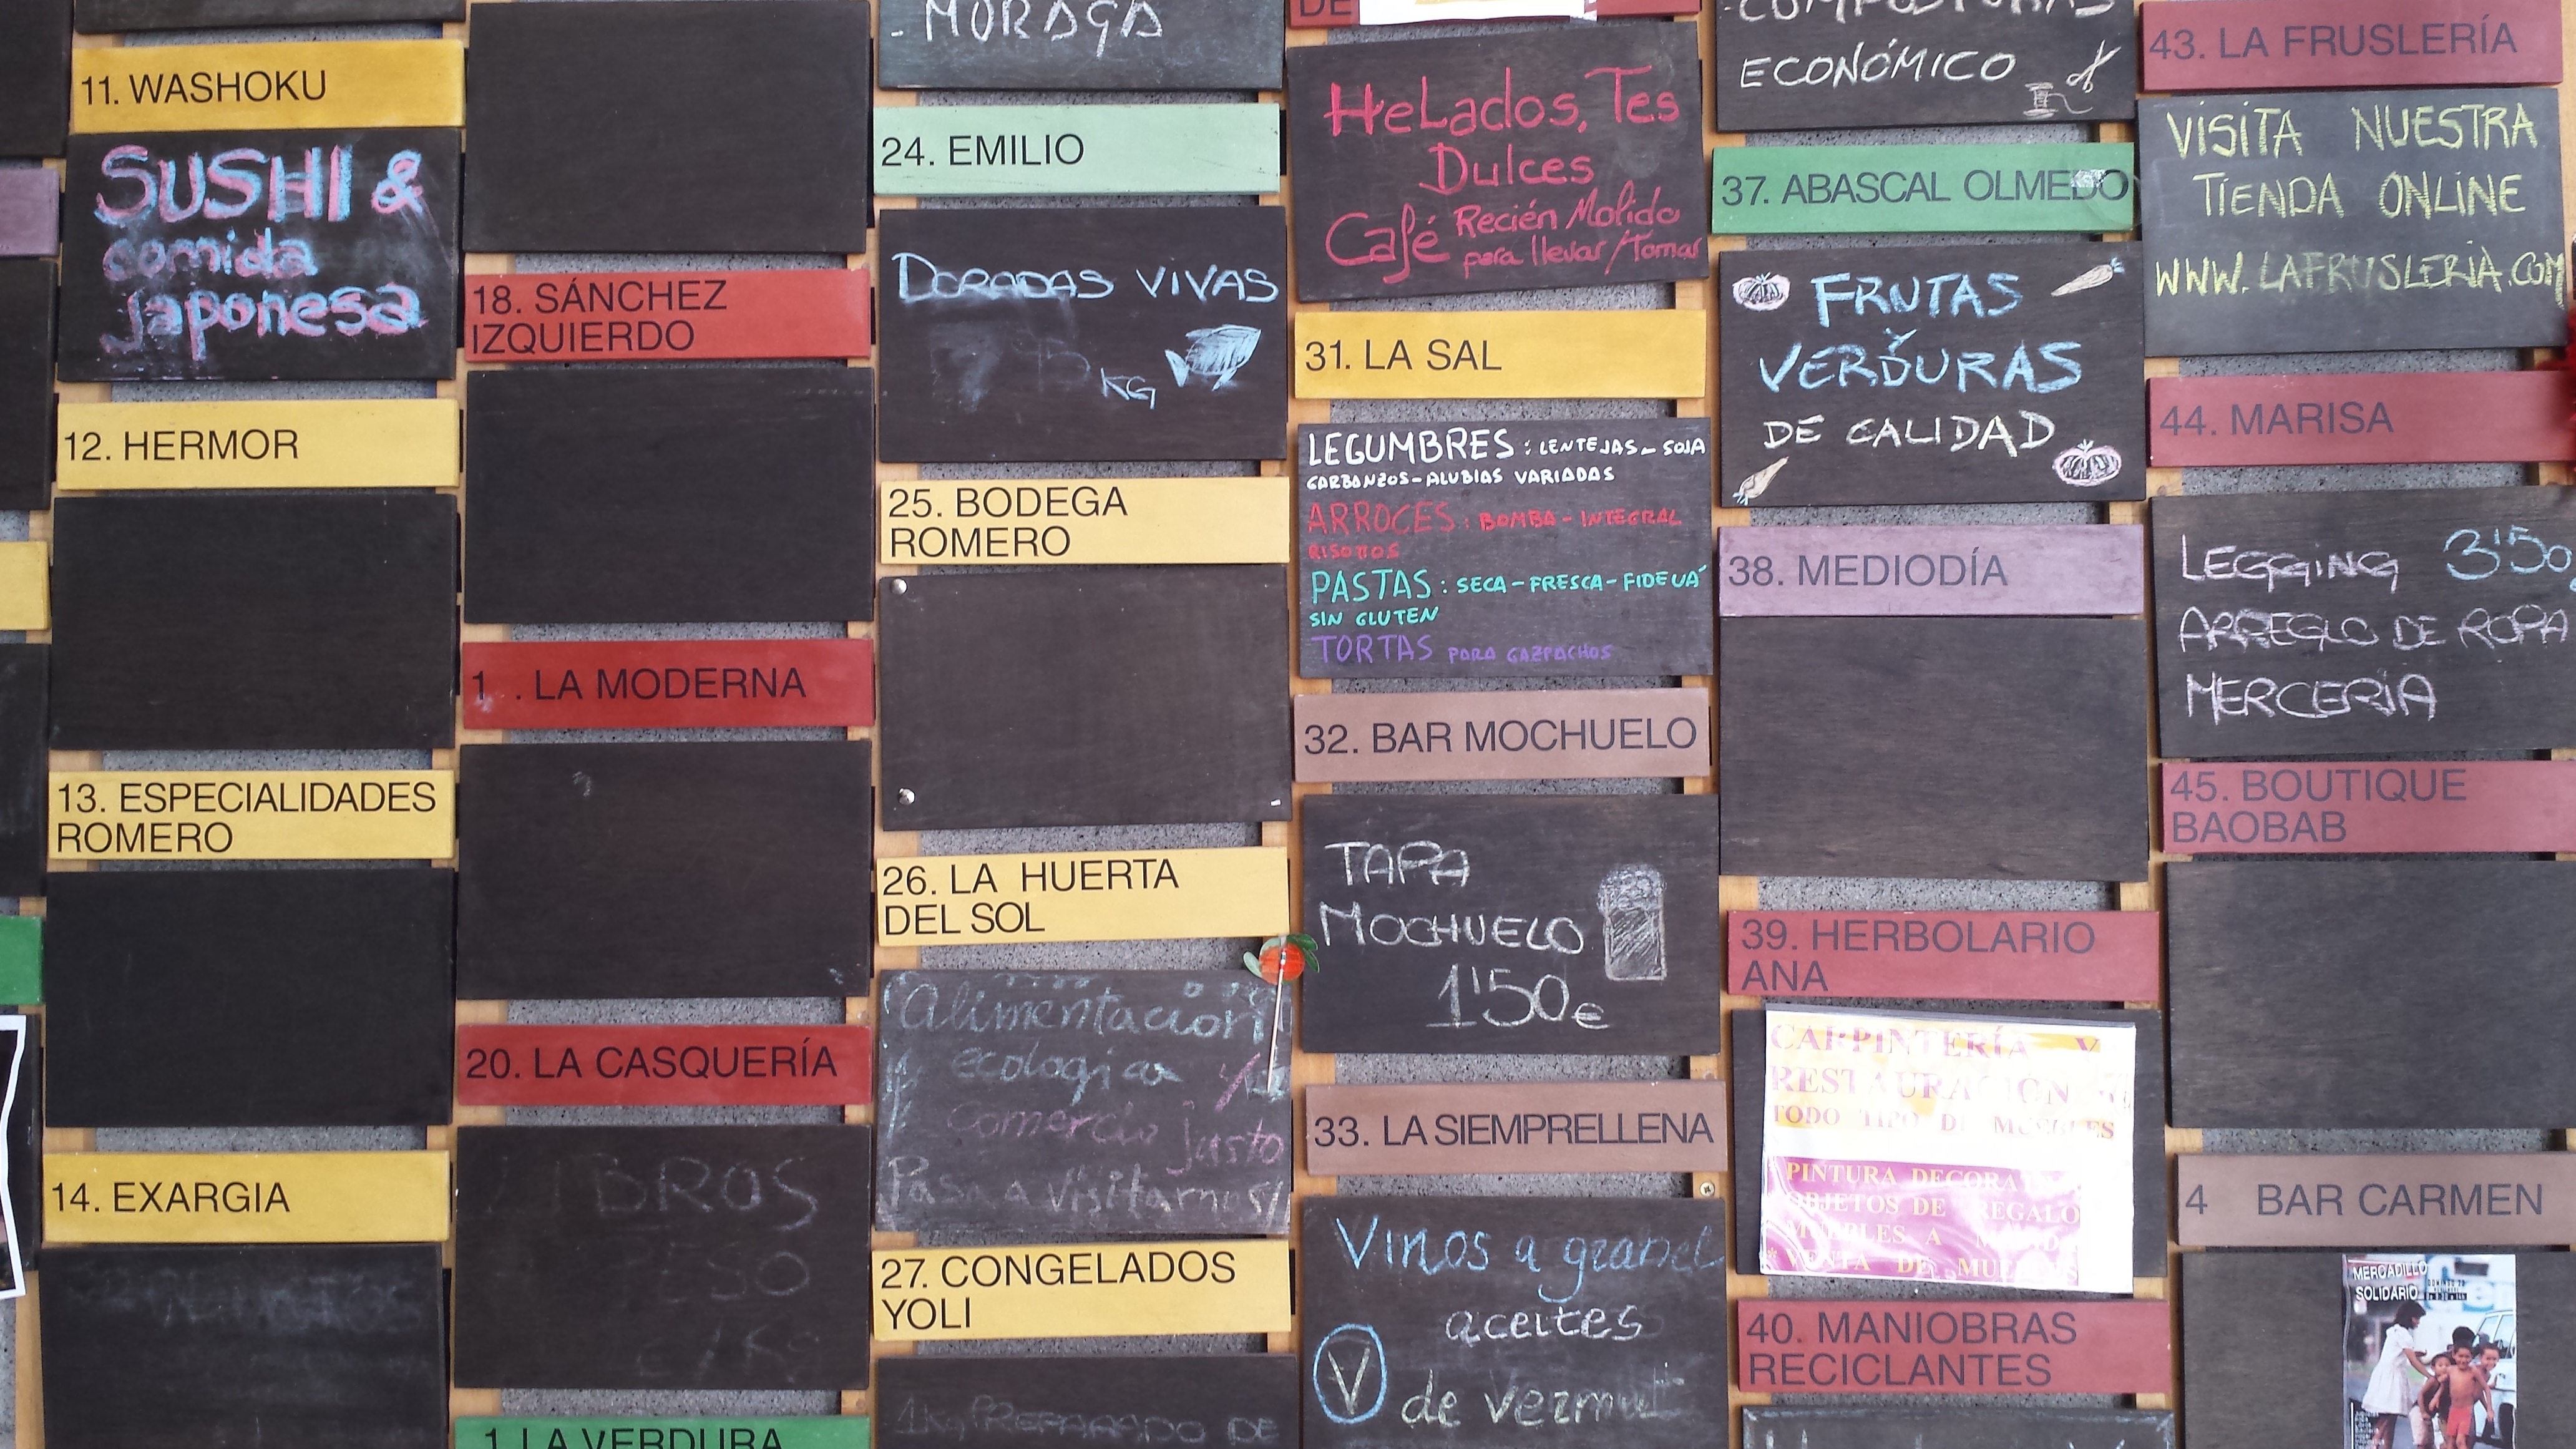 11. WASHOKU
SUSHI &
comida
japonesa
12. HERMOR
13. ESPECIALIDADES
ROMERO
14. EXARGIA
18. SÁNCHEZ
IZQUIERDO
1 . LA MODERNA
20. LA CASQUERÍA
LIBROS
PESO
€/KG
1 LA VERDURA
- MORAGA
24. EMILIO
DORADAS VIVAS
KG
25. BODEGA
ROMERO
26. LA HUERTA
DEL SOL
Alimentación
ecológica y
comercio justo
Pasa a visitarnos!
27. CONGELADOS
YOLI
1KG PREPARADO DE
DE
HeLados, Tes
Dulces
Café Recién Molido
para llevar/Tomar
31. LA SAL
LEGUMBRES : LENTEJAS - SOJA
GARBANZOS - ALUBIAS VARIADAS
ARROCES : BOMBA - INTEGRAL
RISOTTOS
PASTAS : SECA - FRESCA - FIDEUÁ
SIN GLUTEN
TORTAS PARA GAZPACHOS
32. BAR MOCHUELO
TAPA
MOCHUELO
1'50€
33. LA SIEMPRELLENA
Vinos a granel
aceites
V de vermut
COMPOSTURAS
ECONÓMICO
37. ABASCAL OLMEDO
FRUTAS
Y
VERDURAS
DE CALIDAD
38. MEDIODÍA
39. HERBOLARIO
ANA
CARPINTERÍA Y
RESTAURACIÓN
TODO TIPO DE MUEBLES
* PINTURA DECORATIVA
OBJETOS DE REGALO
MUEBLES A MEDIDA
* VENTA DE MUEBLES
40. MANIOBRAS
RECICLANTES
43. LA FRUSLERÍA
VISITA NUESTRA
TIENDA ONLINE
WWW.LAFRUSLERIA.COM
44. MARISA
LEGGING 3'50
ARREGLO DE ROPA
MERCERÍA
45. BOUTIQUE
BAOBAB
4 BAR CARMEN
MERCADILLO
SOLIDARIO